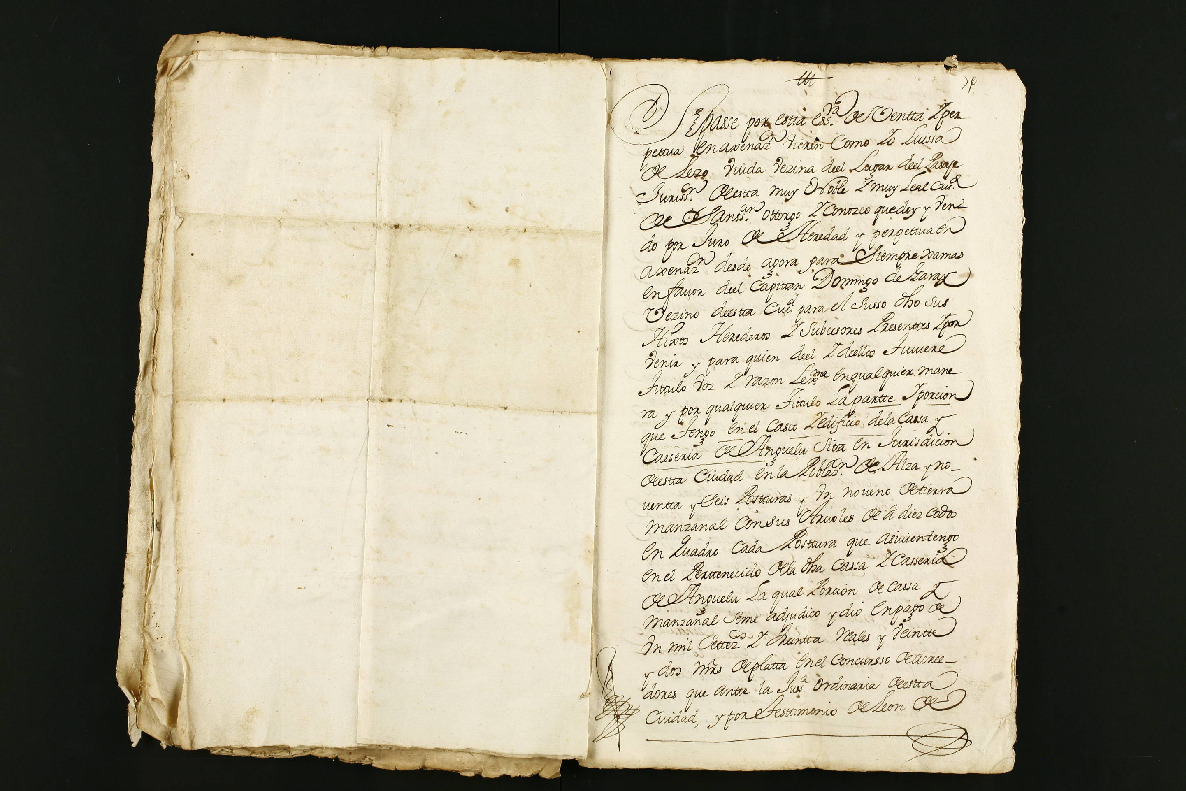 Sepasse por esta esra de Ventta Y per
petua Enaxenazon vieren Como Yo Luissa
de Lezo Viuda vezina del Lugar del Passaje
Jurisson de esta muy Noble Y muy Leal Ciud
de San Ssan ottorgo Y Conozco que doy y Ven
do por Juro de Heredad y perpetua En
axenazon desde agora para Siempre Jamas
En favor del Capittan Domingo de Garay
Vezino de esta Ciud para el Susso dho sus
Hixos Herederos Y Subcesores Presentes Y por
venir y para quien del Y de ellos huviere
titulo Voz Y razon En qualquier mane
ra y por qualquier titulo La partte Y porcion
que tengo En el Casco Y edificio de la Cassa y
Casseria de Anguelu Sitta En Jurisdicion
de esta Ciudad En la Poblazon de Alza y no-
venta y Seis Postturas y Un noveno de tierra
manzanal Con sus Arvoles de a diez Codos
En quadro Cada Posttura que assi tengo
En el Perttenecido de la dha Cassa Y Casseria
de Anguelu La qual Porcion de Cassa Y
manzanal Se me adjudico y dio En pago de
Un mil Y treintta reales y Veintte
y dos mrs de platta En el Concursso de acree-
dores que antte la Jusa ordinaria de esta
Ciudad, y por testimonio de Leon de